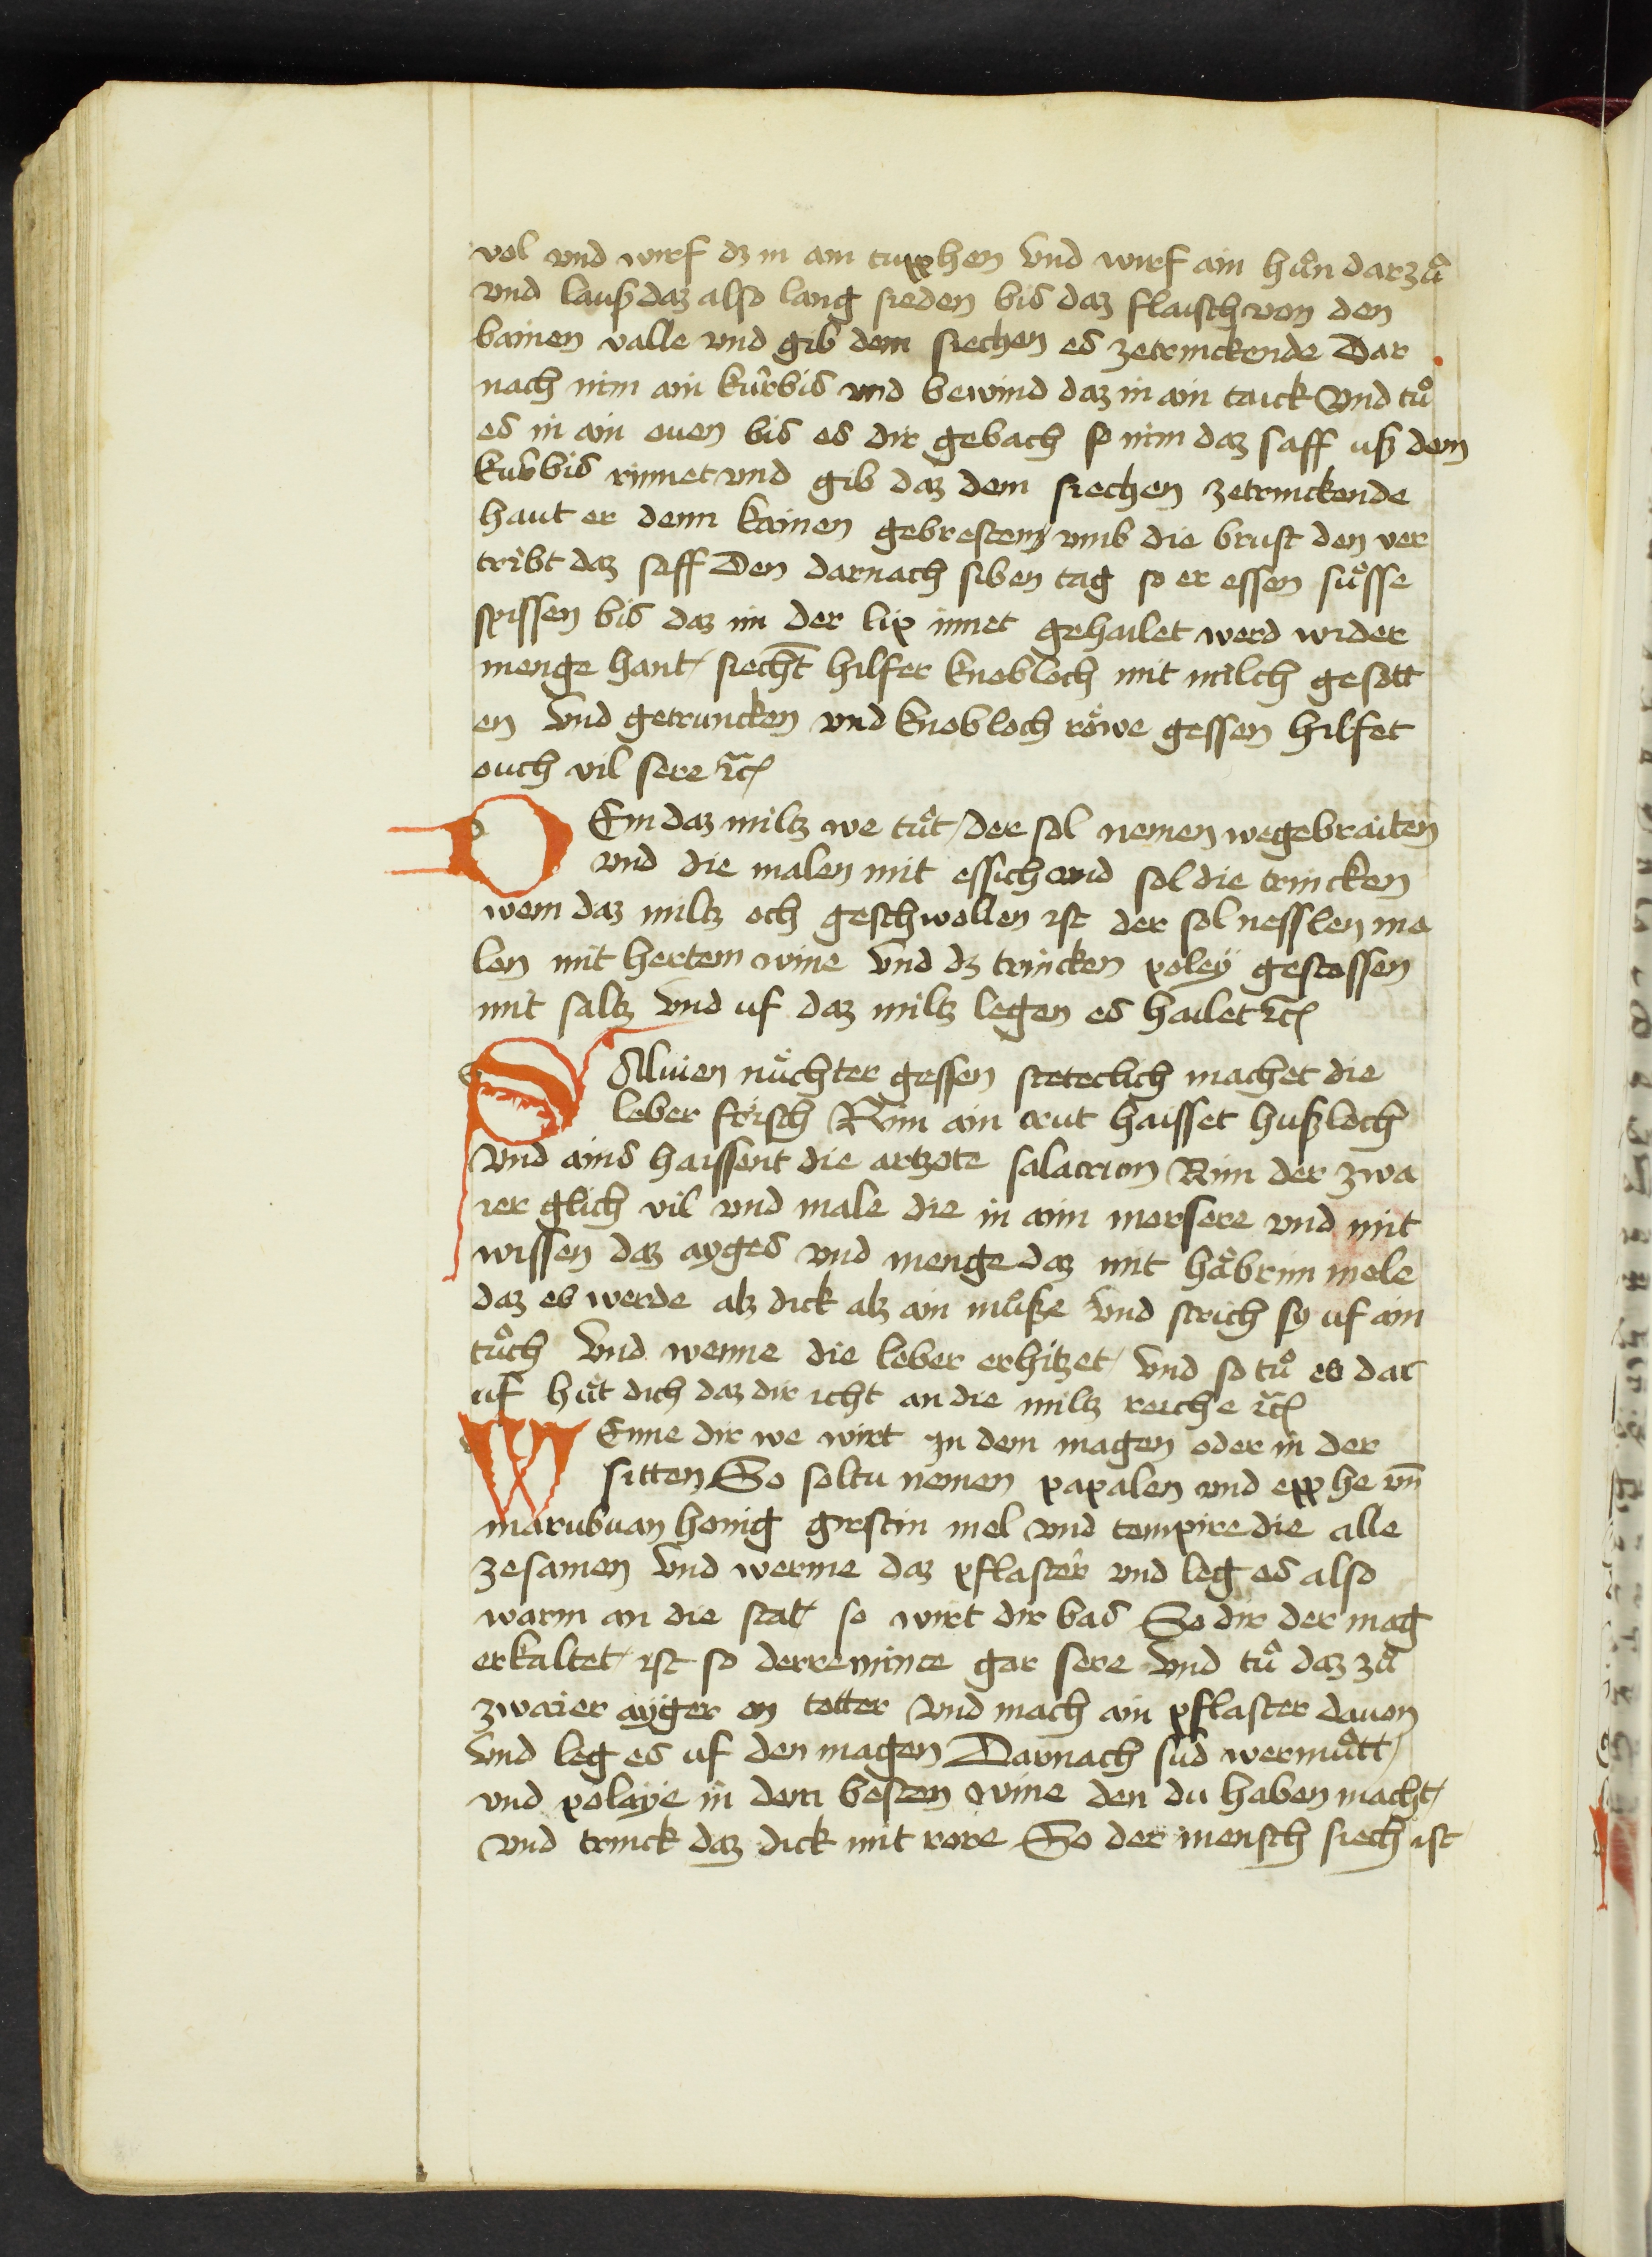 vol vnd wirf dz in ain tupphen vnd wirf ain huͦn darzuͦ
vnd lauß daz also lang sieden bis daz flaisch von den
bainen valle vnd gib dem siechen es zetrinckende Dar
nach nim ain kúrbis vnd bewind daz in ain taick Vnd tuͦ
es in ain ouen bis es dir gebach so nim daz saff uß dem
kúrbis rinnet vnd gib daz dem siechen zetrinckende
haut er denn kainen gebresten vmb die brust den ver
tribt daz saff Den darnach siben tag so er essen suͤsse
spissen bis daz im der lip innet gehailet werd wider
menge hant siecht hilfer knobloch mit milch gesott
en Vnd getruncken vnd knobloch roͤwe gessen hilfet
ouch vil sere ꝛc
DEm daz miltz we tuͦt der sol nemen wegebraiten
vnd die malen mit essich vnd sol die trincken
wem daz miltz och geschwollen ist der sol nesslen ma
len mit hertem wine Vnd dz trincken poleÿ gestossen
mit saltz vnd uf daz miltz legen es hailet ꝛc
SAluien nuͤchter gessen steteclich machet die
leber frisch Nim ain crut haisset hußloch
Vnd ains haissent die artzote salatrion Nim der zwa
ier glich vil vnd male die in aim morsere vnd mit
wissen daz ayges vnd menge daz mit haͤbrim mele
daz es werde alz dick alz ain muͦße Vnd strich sy uf ain
tuͦch Vnd wenne die leber erhitzet Vnd so tuͦ es dar
uf huͤt dich daz dir icht an die miltz reiche ꝛc
WEnne dir we wirt In dem magen oder in der
sitten So soltu nemen papalen vnd epphe vn̄
marubuan honig girstin mel vnd tempire die alle
zesamen Vnd werme daz pflaster vnd leg es also
warm an die stat so wirt dir bas So dir der mag
erkaltet ist so derre mince gar sere Vnd tuͦ daz zuͦ
zwaier ayger on totter Vnd mach ain pflaster dauon
Vnd leg es uf den magen Darnach sud wermuͦtt
vnd polaye in dem besten wine den du haben macht
vnd trinck daz dick mit rore So der mensch siech ist